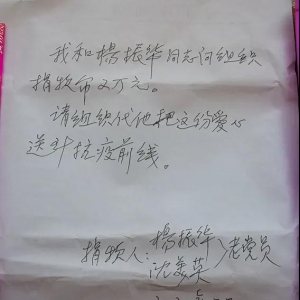 我和杨振华同志向组织
捐款币2万元。
请组织代他把这份爱心
送到抗疫前线。
捐款人：杨振华
沈美英
老党员